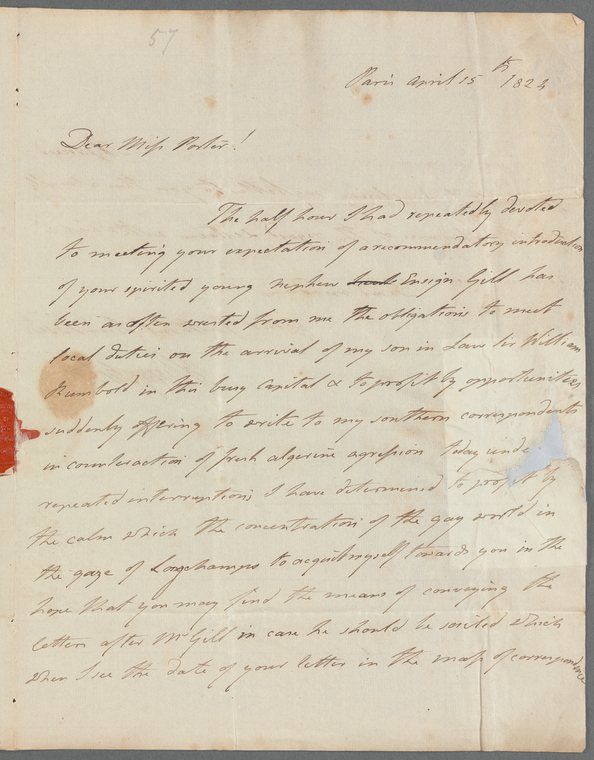 57
Paris April 15th 1824
Dear Miss Porter!
The half hour I had repeatedly devoted
to meeting your expectation of a recommendatory introduction
of your spirited young nephew Ensign Gill has
been as often wrested from me the obligations to meet
local duties on the arrival of my son in Law Sir William
Rumbold in this busy Capital & to profit by opportunities
suddenly offering to write to my southern correspondents
in counteraction of fresh algerine agression today unde
repeated interruptions I have determined to profit by
the calm which the concentration of the gay world in
the gaze of Longchamps to acquit myself towards you in the
hope that you may find the means of conveying the
letters after Mr Gill in case he should be sailed which
when I see the date of your letter in the mass of correspondence